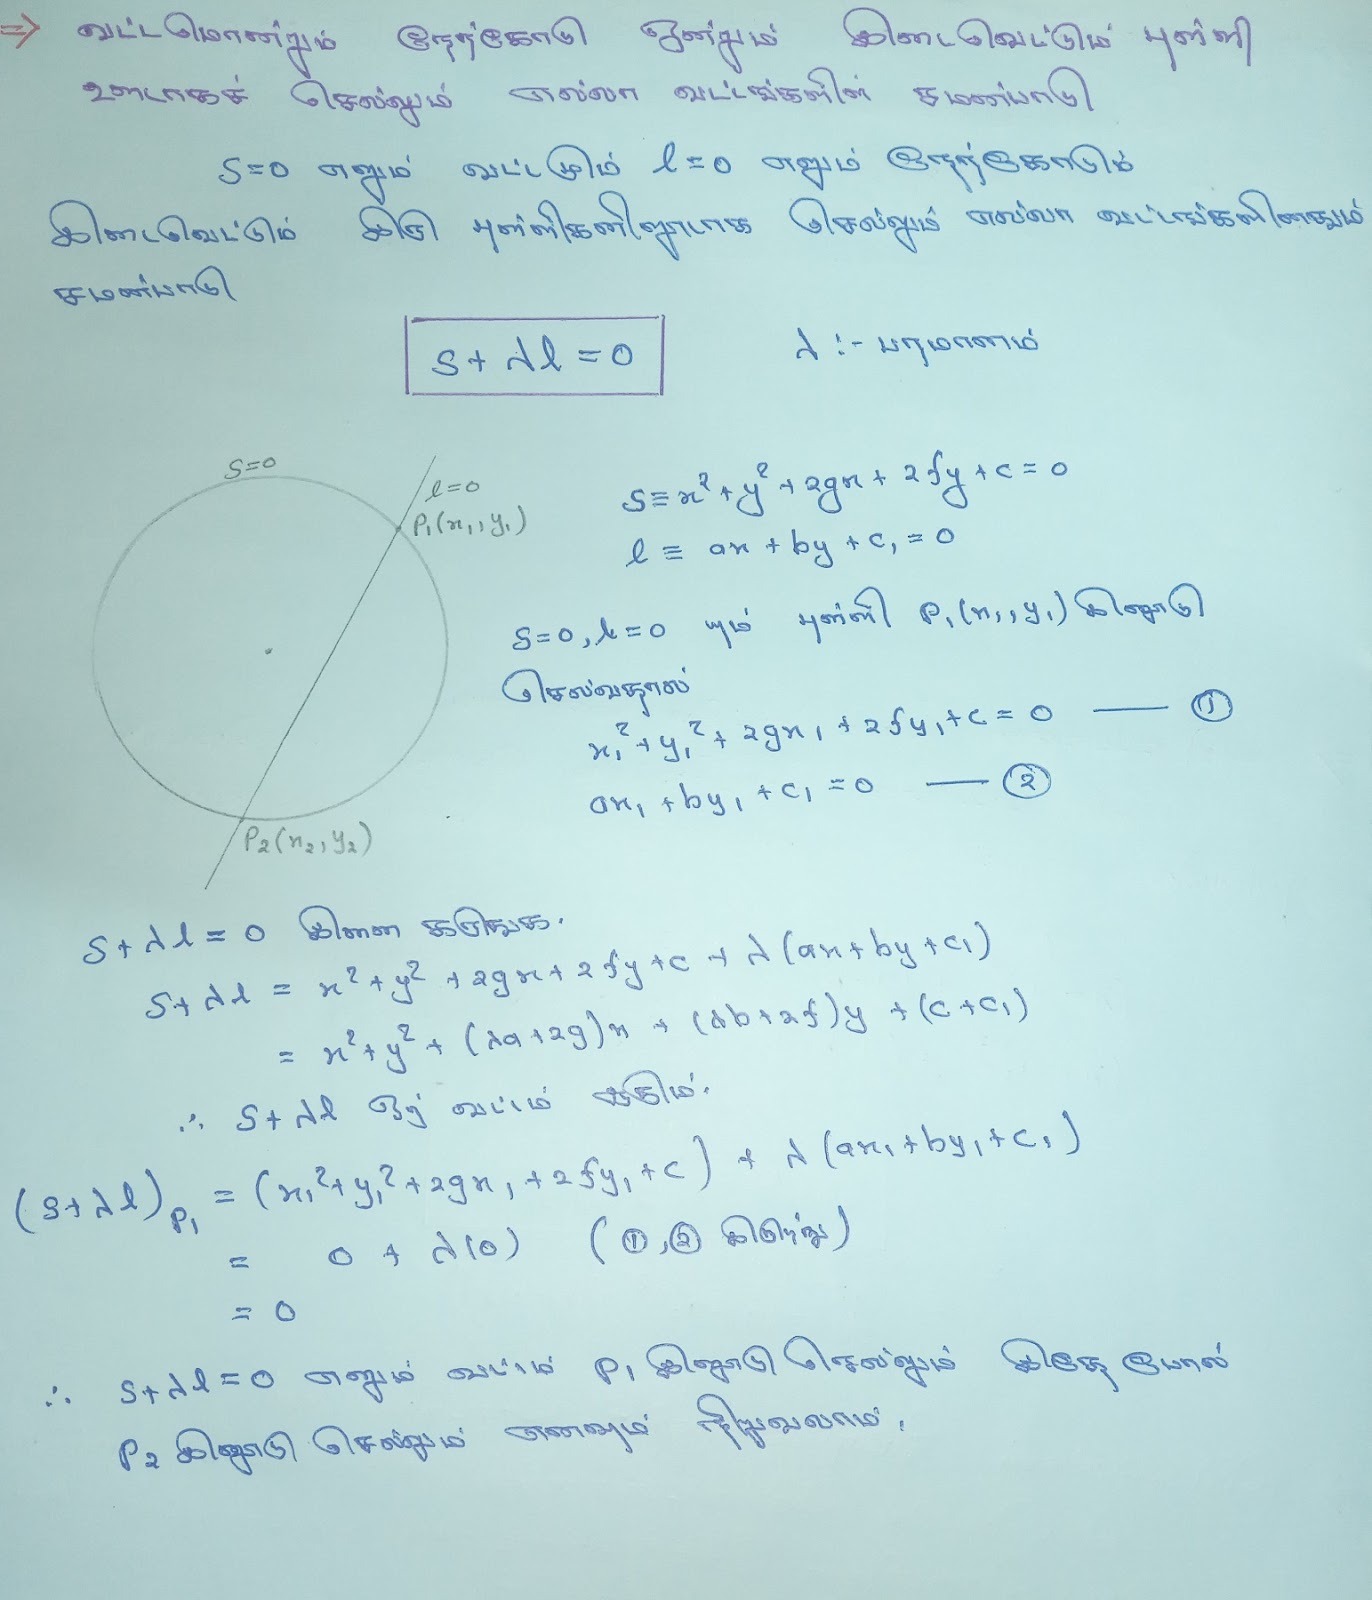 ⇒ வட்டமொன்றும் நேர்கோடு ஒன்றும் இடைவெட்டும் புள்ளி
ஊடாகச் செல்லும் எல்லா வட்டங்களின் சமன்பாடு
S=0 எனும் வட்டமும் l=0 எனும் நேர்கோடும்
இடைவெட்டும் இரு புள்ளிகளினூடாக செல்லும் எல்லா வட்டங்களினதும்
சமன்பாடு
S + λl = 0
λ :- பரமானம்
S=0
l=0
P₁(x₁, y₁)
S ≡ x² + y² + 2gx + 2fy + c = 0
l ≡ ax + by + c₁ = 0
S=0, l=0 யும் புள்ளி P₁(x₁, y₁) இனூடு
செல்வதால்
x₁² + y₁² + 2gx₁ + 2fy₁ + c = 0 — ①
ax₁ + by₁ + c₁ = 0 — ②
P₂(x₂, y₂)
S + λl = 0 இனை கருதுக.
S + λl = x² + y² + 2gx + 2fy + c + λ(ax + by + c₁)
= x² + y² + (λa + 2g)x + (λb + 2f)y + (c + c₁)
∴ S + λl ஒரு வட்டம் ஆகும்.
(S + λl)P₁ = (x₁² + y₁² + 2gx₁ + 2fy₁ + c) + λ(ax₁ + by₁ + c₁)
= 0 + λ(0) (①, ② இலிருந்து)
= 0
∴ S + λl = 0 எனும் வட்டம் P₁ இனூடு செல்லும் இதே போல்
P₂ இனூடு செல்லும் எனவும் நிறுவலாம்.